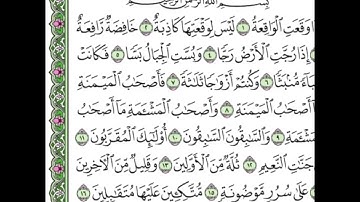 بِسْمِ ٱللَّهِ ٱلرَّحْمَٰنِ ٱلرَّحِيمِ
وَقَعَتِ ٱلْوَاقِعَةُ ١ لَيْسَ لِوَقْعَتِهَا كَاذِبَةٌ ٢ خَافِضَةٌ رَّافِعَةٌ
إِذَا رُجَّتِ ٱلْأَرْضُ رَجًّا ٤ وَبُسَّتِ ٱلْجِبَالُ بَسًّا ٥ فَكَانَتْ
بَآءً مُّنۢبَثًّا ٦ وَكُنتُمْ أَزْوَٰجًا ثَلَٰثَةً ٧ فَأَصْحَٰبُ ٱلْمَيْمَنَةِ
أَصْحَٰبُ ٱلْمَيْمَنَةِ ٨ وَأَصْحَٰبُ ٱلْمَشْـَٔمَةِ مَآ أَصْحَٰبُ
مَشْـَٔمَةِ ٩ وَٱلسَّٰبِقُونَ ٱلسَّٰبِقُونَ ١٠ أُو۟لَٰٓئِكَ ٱلْمُقَرَّبُونَ ١١
جَنَّٰتِ ٱلنَّعِيمِ ١٢ ثُلَّةٌ مِّنَ ٱلْأَوَّلِينَ ١٣ وَقَلِيلٌ مِّنَ ٱلْءَاخِرِينَ
عَلَىٰ سُرُرٍ مَّوْضُونَةٍ ١٥ مُّتَّكِـِٔينَ عَلَيْهَا مُتَقَٰبِلِينَ ١٦